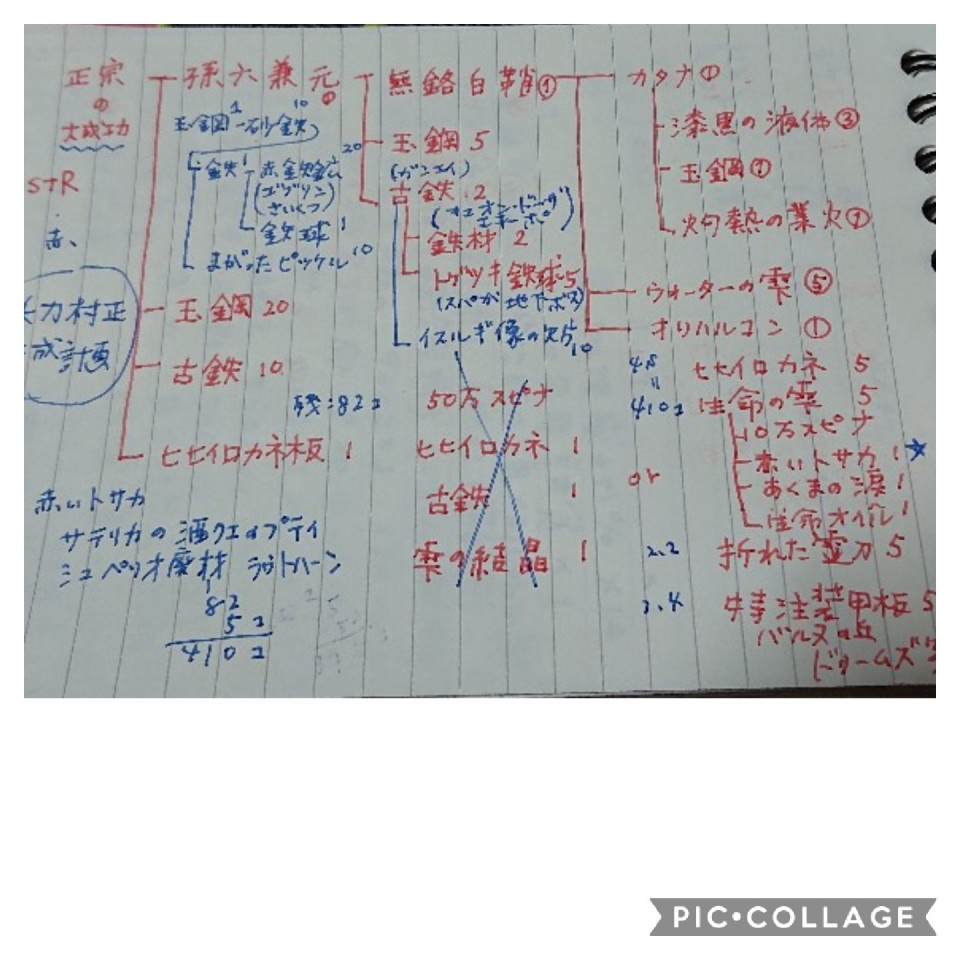 正宗
の
大成功
STR
赤、
力村正
成計画
孫六兼元①
玉鋼1 砂鉄10
金鉄1 赤金
(ゴブリン)
(さいくつ)
鉄球 1
まがったピッケル10
玉鋼 20
古鉄 10
ヒヒイロカネ板 1
無銘白鞘①
玉鋼 5
20
古鉄 2
鉄材 2
トゲツキ鉄球 5
(スパが地下ボス)
イスルギ像の欠片10
カタナ①
漆黒の液体③
玉鋼①
灼熱の業火①
ウォーターの雫⑤
オリハルコン①
残:82コ
50万スピナ
ヒヒイロカネ 1
古鉄 1
雫の結晶 1
4.5
410コ
ヒヒイロカネ 5
生命の雫 5
10万スピナ
赤いトサカ 1★
あくまの涙 1
生命オイル 1
or
2.2
折れた霊刀 5
3.4
特注装甲板 5
バルスの丘
赤いトサカ
サテリカの酒
ミュペリオ廃材
82
5コ
410コ
PIC•COLLAGE